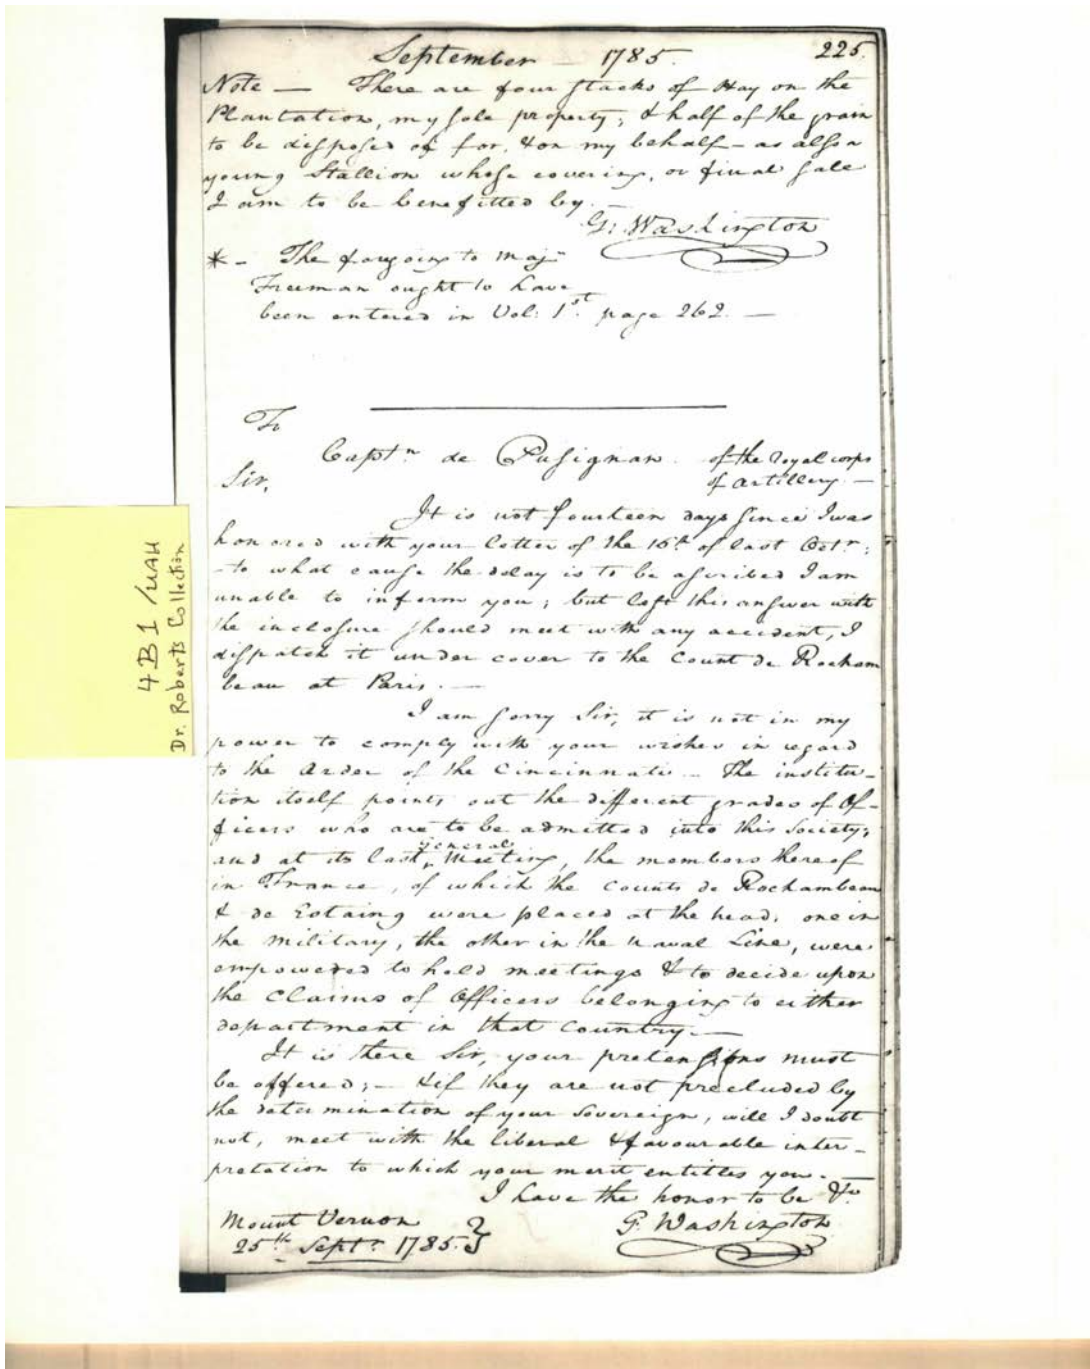 September — 1785. 225.
Note — There are four stacks of Hay on the
Plantation, my sole property; & half of the grain
to be disposed of for, & on my behalf — as also a
young Stallion whose covering, or final sale
I am to be benefitted by. —
G: Washington
* - The foregoing to Majr
Freeman ought to have
been entered in Vol: 1st. page 262. —
To
Captn de Pusignan. of the Royal corps
of Artillery. —
Sir,
It is not fourteen days since I was
honored with your letter of the 16th of last Octr;
- to what cause the delay is to be ascribed I am
unable to inform you; but lest this answer with
the inclosure should meet with any accident, I
dispatch it under cover to the Count de Rocham
beau at Paris. —
I am sorry Sir, it is not in my
power to comply with your wishes in regard
to the Order of the Cincinnati — The institu-
tion itself points out the different grades of Of-
ficers who are to be admitted into this Society;
general
and at its last, Meeting, the members thereof
in France, of which the Counts de Rochambeau
& de Estaing were placed at the head, one in
the military, the other in the naval Line, were
empowered to hold meetings & to decide upon
the claims of Officers belonging to either
department in that Country. —
It is there Sir, your pretensions must
be offered; — & if they are not precluded by
the determination of your Sovereign, will I doubt
not, meet with the liberal & favourable inter-
pretation to which your merit entitles you. —
I have the honor to be &c.
Mount Vernon }
25th Septr 1785. }
G: Washington
4B1/UAH
Dr. Roberts Collection